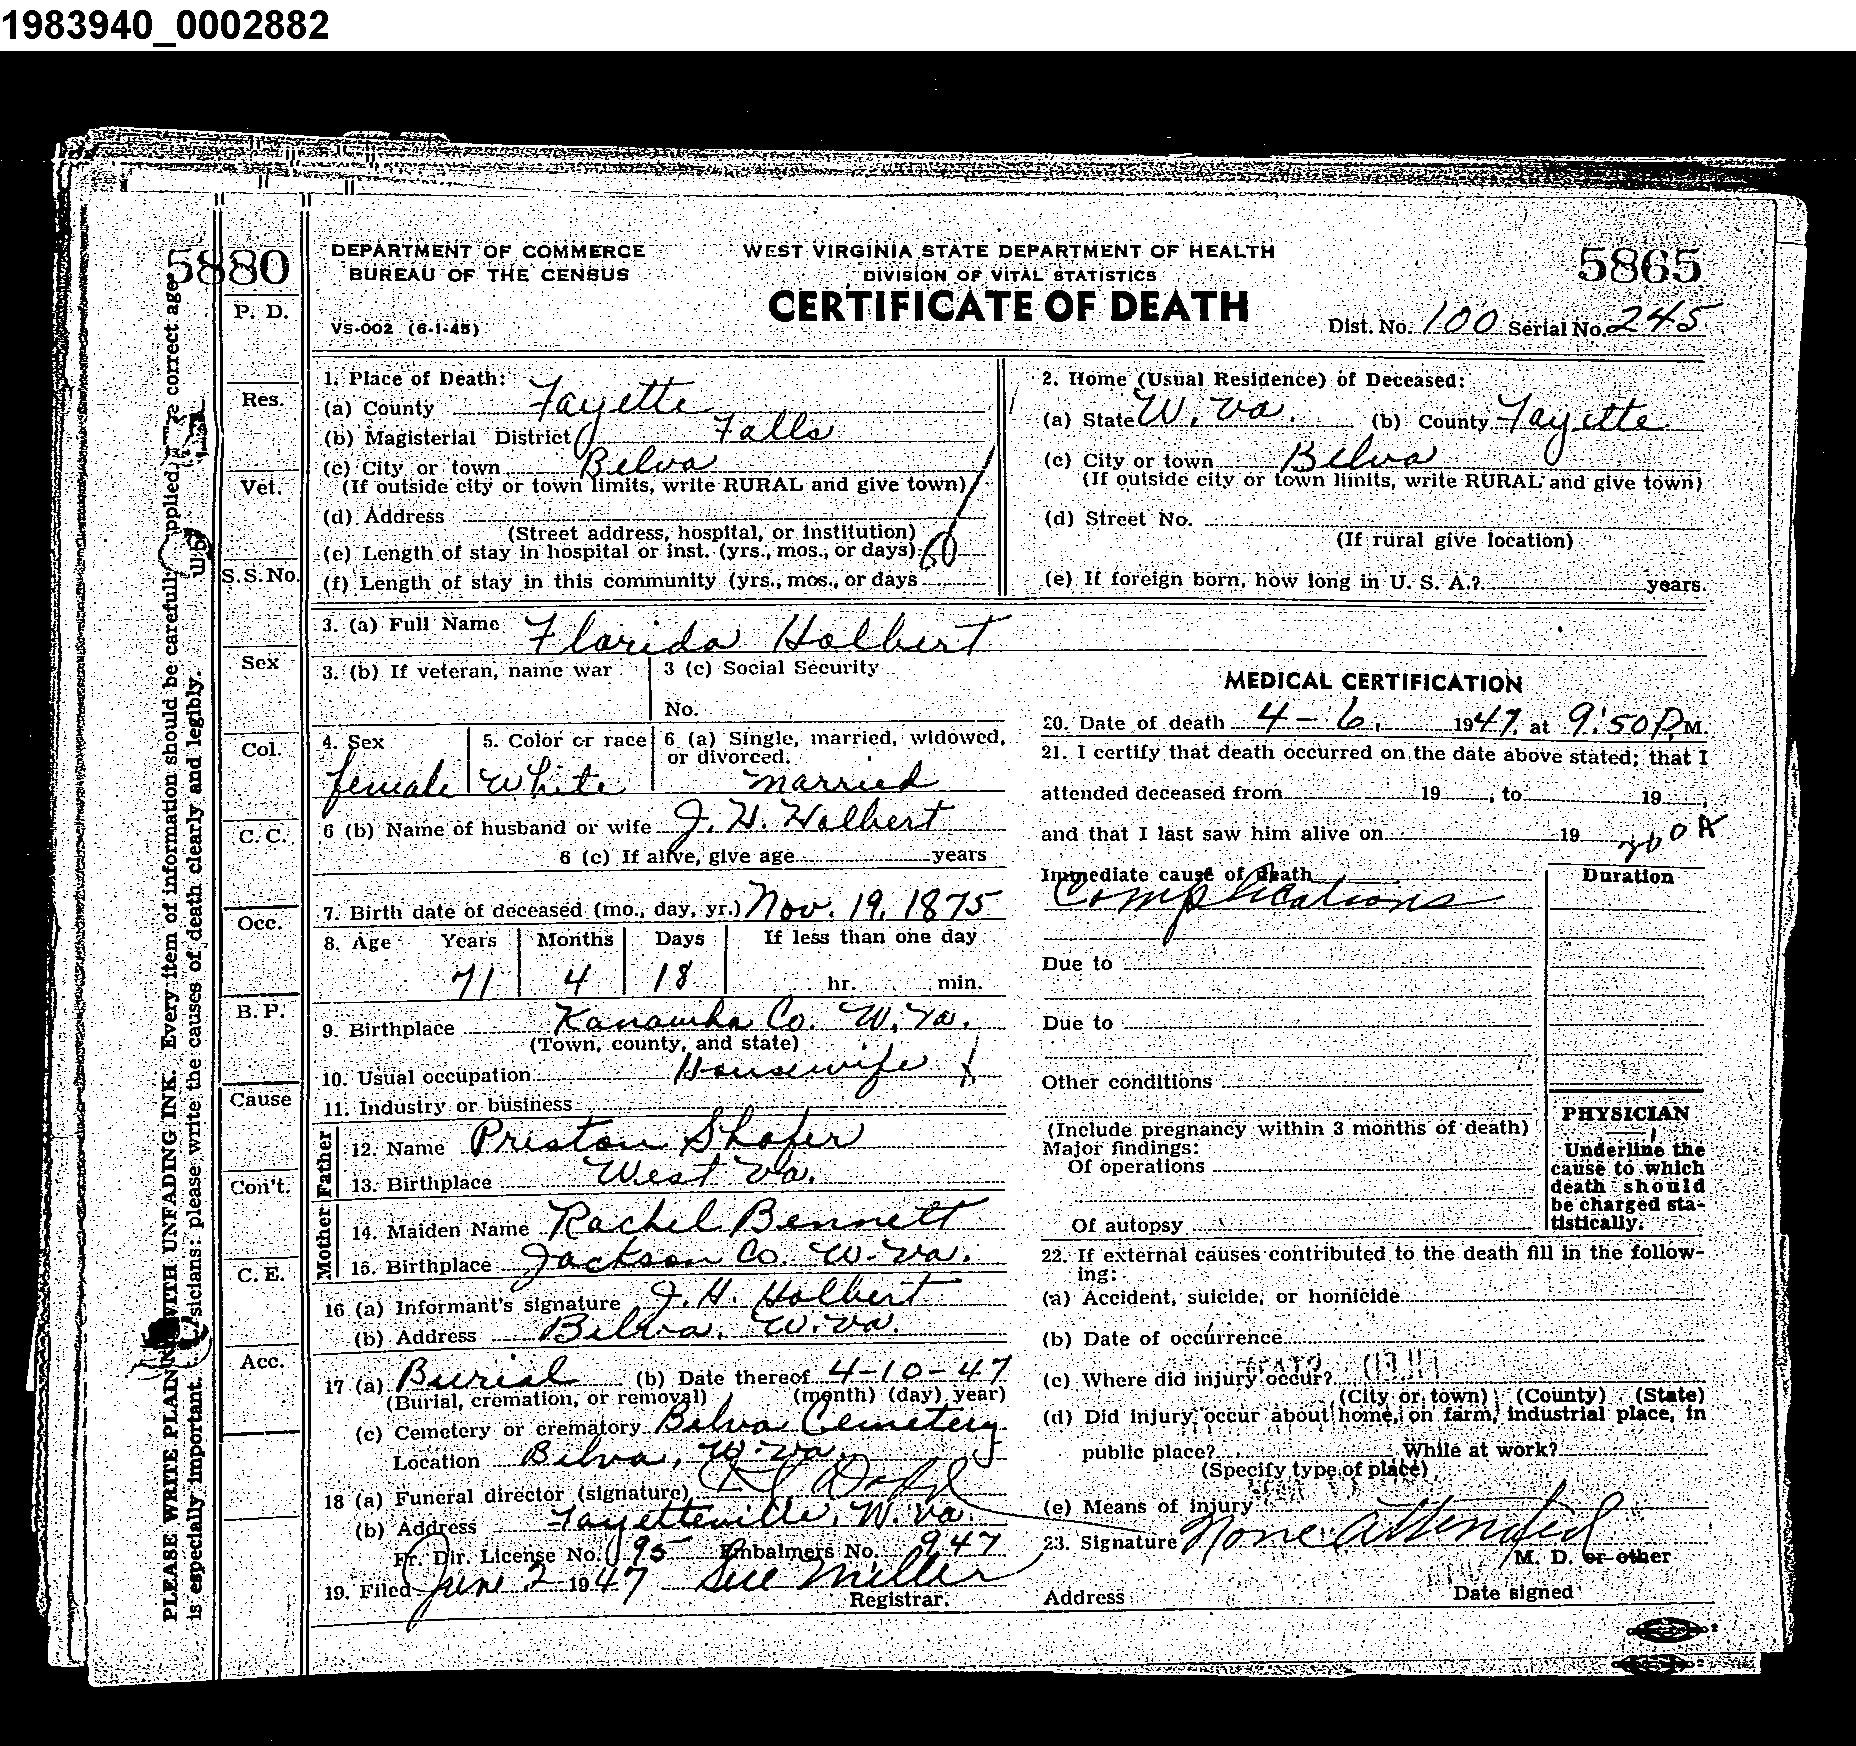 1983940_0002882
5880
DEPARTMENT OF COMMERCE
BUREAU OF THE CENSUS
VS-002 (6-1-45)
WEST VIRGINIA STATE DEPARTMENT OF HEALTH
DIVISION OF VITAL STATISTICS
CERTIFICATE OF DEATH
5865
Dist. No. 100 Serial No. 245
PLEASE WRITE PLAINLY WITH UNFADING INK. Every item of information should be carefully supplied. correct age
is especially important. Physicians: please write the causes of death clearly and legibly.
P. D.
Res.
Vet.
S.S.No.
Sex
Col.
C. C.
Occ.
B. P.
Cause
Con't.
C. E.
Acc.
1. Place of Death:
(a) County Fayette
(b) Magisterial District Falls
(c) City or town Belva
(If outside city or town limits, write RURAL and give town)
(d) Address
(Street address, hospital, or institution)
(e) Length of stay in hospital or inst. (yrs., mos., or days)
(f) Length of stay in this community (yrs., mos., or days
2. Home (Usual Residence) of Deceased:
(a) State W. Va. (b) County Fayette
(c) City or town Belva
(If outside city or town limits, write RURAL and give town)
(d) Street No.
(If rural give location)
(e) If foreign born, how long in U. S. A.? years.
3. (a) Full Name Florida Holbert
3. (b) If veteran, name war
3 (c) Social Security
No.
4. Sex female
5. Color or race White
6 (a) Single, married, widowed,
or divorced. married
6 (b) Name of husband or wife J. H. Holbert
6 (c) If alive, give age years
7. Birth date of deceased (mo., day, yr.) Nov. 19, 1875
8. Age Years Months Days If less than one day
71 4 18 hr. min.
9. Birthplace Kanawha Co. W. Va.
(Town, county, and state)
10. Usual occupation Housewife
11. Industry or business
Father
12. Name Preston Shafer
13. Birthplace West Va.
Mother
14. Maiden Name Rachel Bennett
15. Birthplace Jackson Co. W. Va.
16 (a) Informant's signature J. H. Holbert
(b) Address Belva, W. Va.
17 (a) Burial (b) Date thereof 4-10-47
(Burial, cremation, or removal) (month) (day) year)
(c) Cemetery or crematory Belva Cemetery
Location Belva, W. Va.
18 (a) Funeral director (signature)
(b) Address Fayetteville, W. Va.
Fr. Dir. License No. 195 Embalmers No. 947
19. Filed June 2 1947 Sue Miller
Registrar.
MEDICAL CERTIFICATION
20. Date of death 4-6, 1947. at 9:50 P. M.
21. I certify that death occurred on the date above stated; that I
attended deceased from 19 , to 19 ,
and that I last saw him alive on 19
Immediate cause of death Duration
Complications
Due to
Due to
Other conditions
(Include pregnancy within 3 months of death)
Major findings:
Of operations
Of autopsy
PHYSICIAN
Underline the
cause to which
death should
be charged sta-
tistically.
22. If external causes contributed to the death fill in the follow-
ing:
(a) Accident, suicide, or homicide
(b) Date of occurrence
(c) Where did injury occur?
(City or town) (County) (State)
(d) Did injury occur about home, on farm, industrial place, in
public place? While at work?
(Specify type of place)
(e) Means of injury
23. Signature None Attended
M. D. or other
Address Date signed